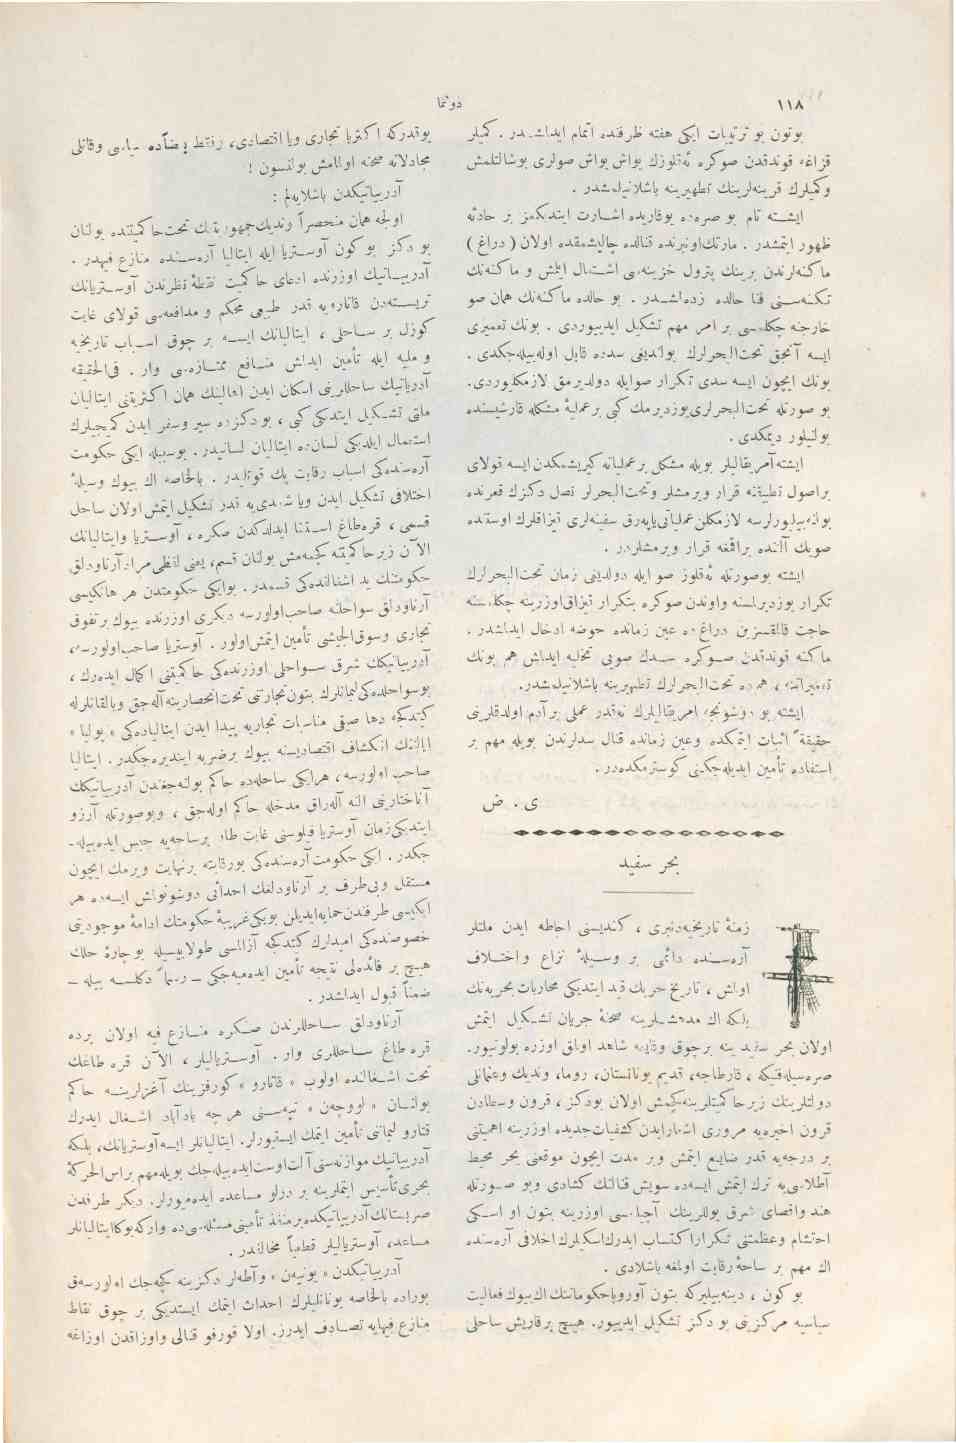 ١١٨
دونما
بوتون بو ترتيبات ايكى هفته ظرفنده اتمام ايدلمشدر . كميلر
قزاغه قوندقدن صوكره نه‌قلوزك بواش بواش صولرى بوشالتلمش
وكميلرك قرينه‌لرينك تطهيرينه باشلانيلمشدر .
ايشته تام بو صره‌ده بوقاريده اشارت ايتديكمز بر حادثه
ظهور ايتمشدر . مارتك اون‌برنده قنالده چاليشمقده اولان ( دراغ )
ماكنه‌لرندن برينك پترول خزينه‌سى اشتعال ايتمش و ماكنه‌نك
تكنه‌سنى فنا حالده زده‌لمشدر . بو حالده ماكنه‌نك همان صو
خارجنه چكلمسى بر امر مهم تشكيل ايدييوردى . بونك تعميرى
ايسه آنجق تحت‌البحرلرك بولنديغى سدده قابل اوله‌بيله‌جكدى .
بونك ايچون ايسه سدى تكرار صوايله دولديرمق لازمكليوردى.
بو صورتله تحت‌البحرلرى يوزديرمك كبى برعمليهٔ مشكله قارشيسنده
بولنيلور ديمكدى .
ايشته آمريقاليلر بويله مشكل بر عملياته كيريشمكدن ايسه قولاى
براصول تطبيقنه قرار ويرمشلر وتحت‌البحرلر نصل دكزك قعرنده
بولنه‌بيليورلرسه لازمكلن عملياتى ياپه‌رق سفينه‌لرى تيزاقلرك اوستنده
صويك آلتنده براقمغه قرار ويرمشلردر .
ايشته بوصورتله نه‌قلوز صو ايله دولديغى زمان تحت‌البحرلرك
تكرار يوزديرلمسنه واوندن صوكره بتكرار تيزاق‌اوزرينه چكلمسنه
حاجت قالقسزين دراغ ده عين زمانده حوضه ادخال ايدلمشدر .
ماكنه قوندقدن صوكره سدك صويى تخليه ايدلمش هم بونك
تعميراتنه ، هم‌ده تحت‌البحرلرك تطهيرينه باشلانيلمشدر.
ايشته بو دوشونجه امريقاليلرك نه‌قدر عملى برآدم اولدقلرينى
حقيقةً اثبات ايتمكده وعين زمانده قنال سدلرندن بويله مهم بر
استفاده تأمين ايديله‌جكنى كوسترمكده‌در .
ى . ض
بحر سفيد
ازمنهٔ تاريخيه‌دنبرى ، كنديسنى احاطه ايدن ملتلر
آره‌سنده دائمى بر وسيلهٔ نزاع و اختلاف
اولمش ، تاريخ حربك قيد ايتديكى محاربات بحريه‌نك
بلكه اك مدهشلرينه صحنهٔ جريان تشكيل ايتمش
اولان بحر سفيد ينه برچوق وقايعه شاهد اولمق اوزره بولونيور.
صره‌سيله فنيكه ، قارطاجه، قديم يونانستان، روما، ونديك وعثمانلى
دولتلرينك زيرحاكميتلرينه‌كچمش اولان بودكز ، قرون وسطادن
قرون اخيره‌يه مرورى اشعار ايدن كشفيات‌جديده اوزرينه اهميتنى
بر درجه‌يه قدر ضايع ايتمش وبر مدت ايچون موقعنى بحر محيط
آطلاسى‌يه ترك ايتمش ايسه‌ده سويش قنالنك كشادى وبو صورتله
هند واقصاى شرق يوللرينك آچيلمسى اوزرينه بتون او اسكى
احتشام وعظمتنى تكرار اكتساب ايدرك‌اسكيلرك اخلافى آره‌سنده
اك مهم بر ساحهٔ رقابت اولمغه باشلادى .
بو كون ، دينه‌بيليركه بتون آوروپاحكوماتنك‌اك‌بيوك‌فعاليت
سياسيه مركزينى بو دكز تشكيل ايدييور. هيچ برقاريش ساحلى
يوقدركه اكثريا تجارى ويا اقتصادى، فقط بضاًده سياسى وقانلى
مجادلاته صحنه اولمامش بولنسون !
آدرياتيكدن باشلايه‌لم :
اولجه همان منحصراً ونديك‌جمهوريتنك تحت‌حاكميتنده بولنان
بو دكز بو كون آوستريا ايله ايتاليا آره‌سنده منازع فيهدر .
آدرياتيك اوزرنده ادعاى حاكميت نقطهٔ نظرندن آوستريانك
تريسته‌دن قاتاروه‌يه قدر طبيعى محكم و مدافعه‌سى قولاى غايت
كوزل بر ساحلى ، ايتاليانك ايسه بر چوق اسباب تاريخيه
و مليه ايله تأمين ايدلمش منافع ممتازه‌سى وار . فى‌الحقيقه
آدرياتيك ساحللرينى اسكان ايدن اهالينك همان اكثريتنى ايتاليان
ملتى تشكيل ايتديكى كبى ، بودكزده سير وسفر ايدن كميجيلرك
استعمال ايلديكى لسان‌ده ايتاليان لسانيدر . بوسببله ايكى حكومت
آره‌سنده‌كى اسباب رقابت پك قوتليدر . بالخاصه اك بيوك وسيلهٔ
اختلافى تشكيل ايدن ويا شمدى‌يه قدر تشكيل ايتمش اولان ساحل
قسمى ، قره‌طاغ استثنا ايدلدكدن صكره ، آوستريا وايتاليانك
الآن زيرحاكميتنه كچمه‌مش بولنان قسم، يعنى لفظى‌مراد آرناودلق
حكومتنك يد اشغالنده‌كى قسمدر . بوايكى حكومتدن هر هانكيسى
آرناودلق سواحلنه صاحب‌اولورسه ديكرى اوزرنده بيوك برتفوق
تجارى وسوق‌الجيشى تأمين ايتمش‌اولور . آوستريا صاحب‌اولورسه،
آدرياتيكك شرق سواحلى اوزرنده‌كى حاكميتنى اكمال ايده‌رك ،
بوسواحلده‌كى‌ليمانلرك بتون تجارتنى تحت‌انحصارينه آله‌جق وبالقانلرله
كيتدكجه دها صيقى مناسبات تجاريه پيدا ايدن ايتالياده‌كى « پوليا »
ايالتنك انكشاف اقتصاديسنه بيوك برضربه اينديره‌جكدر . ايتاليا
صاحب اولورسه ، هرايكى ساحلده حاكم بوله‌جغندن آدرياتيكك
آناختارينى النه آله‌رق مدخله حاكم اوله‌جق ، وبوصورتله آرزو
ايتديكى‌زمان آوستريا فيلوسنى غايت طار برساحه‌يه حبس ايده‌بيله-
جكدر . ايكى حكومت آره‌سنده‌كى بورقابته برنهايت ويرمك ايچون
مستقل وبى‌طرف بر آرناودلغك احداثى دوشونولمش ايسه‌ده هر
ايكيسى طرفندن‌حمايه‌ايديلن بويكى‌غريبهٔ حكومتك ادامهٔ موجوديتى
خصوصنده‌كى اميدلرك كتدكجه آزالمسى طولاييسيله بو چارهٔ حلك
هيچ بر فائده‌لى نتيجه تأمين ايده‌ميه‌جكى – رسماً دكلسه بيله –
ضمناً قبول ايدلمشدر .
آرناودلق ساحللرندن صكره منازع فيه اولان برده
قره طاغ ساحللرى وار. آوسترياليلر ، الآن قره طاغك
تحت اشغالنده اولوب « قاتارو » كورفزينك آغزلرينه حاكم
بولنان « لووچن » تپه‌سنى هرچه بادآباد اشغال ايدرك
قتارو ليماننى تأمين ايتمك ايستيورلر. ايتاليانلر ايسه آوستريانك، بلكه
آدرياتيك موازنه‌سنى آلت اوست‌ايده‌بيله‌جك بويله‌مهم براس‌الحركهٔ
بحرى تأسيس ايتملرينه بر درلو مساعده ايده‌ميورلر. ديكر طرفدن
صربستانك آدرياتيكده برمنفذ تأمينى مسئله‌سى ده واركه بوكا ايتاليانلر
مساعد، آوسترياليلر قطعياً مخالفدر .
آدرياتيكدن « يونيه‌ن » وآطه‌لر دكزينه كچه‌جك اولورسه‌ق
بوراده بالخاصه يونانليلرك احداث ايتمك ايستديكى بر چوق نقاط
منازع فيهايه تصادف ايدرز. اولا قورفو قنالى واوزاقدن اوزاغه